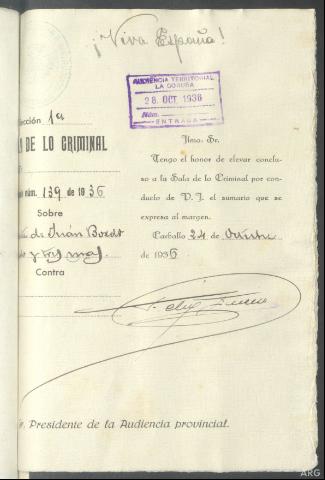 ¡Viva España!
AUDIENCIA TERRITORIAL
LA CORUÑA
28 OCT 1936
Núm.
ENTRADA
ección 1ª
A DE LO CRIMINAL
núm. 139 de 1936
Sobre
de Juán Bordo
y tres mas
Contra
Ilmo. Sr.
Tengo el honor de elevar conclu-
so a la Sala de lo Criminal por con-
ducto de V. I. el sumario que se
expresa al margen.
Carballo 24 de Octubre
de 1936
Presidente de la Audiencia provincial.
ARG